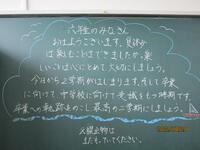 六年生のみなさん
おはようございます。夏休み
は楽しむことはできましたか。楽
しいことは心にとめて大切にしましょう。
今日から2学期がはじまります。そして卒業
に向けて、中学校に向けて意識をもつ時期です。
卒業への軌跡をのこし最高の二学期にしましょう。
※提出物は
まだもっていてください。